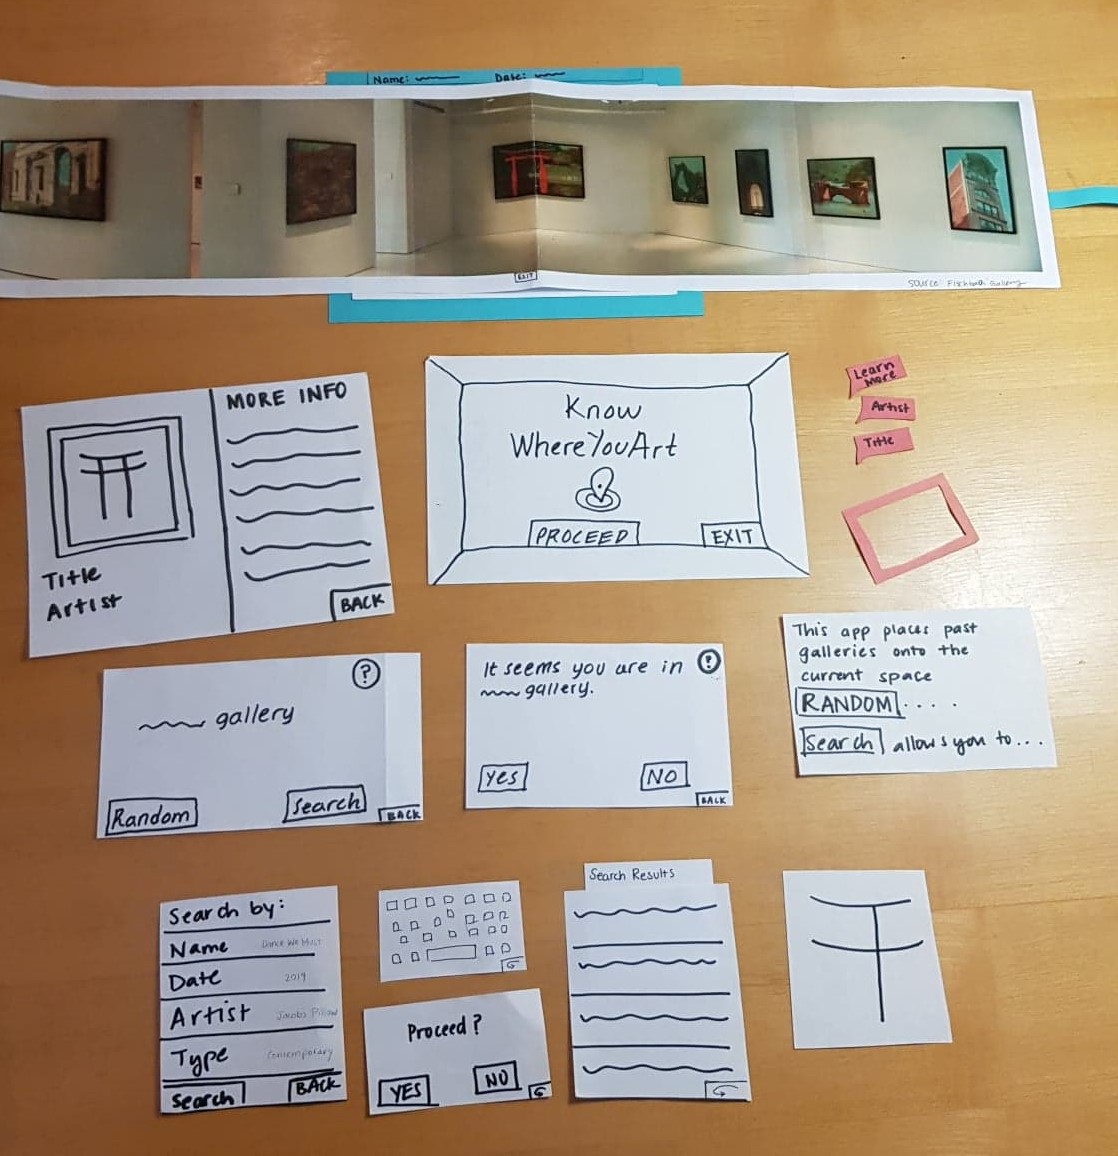 Name: Date:
EXIT
Source: Fischbach Gallery
MORE INFO
Title
Artist
BACK
Know
WhereYouArt
PROCEED
EXIT
Learn
More
Artist
Title
?
gallery
Random
Search
BACK
It seems you are in ?
gallery.
Yes
NO
BACK
This app places past
galleries onto the
current space
RANDOM ....
Search allows you to...
Search by:
Name Dance We Must
Date 2019
Artist Jacobs Pillow
Type Contemporary
Search BACK
Proceed?
YES
NO
Search Results